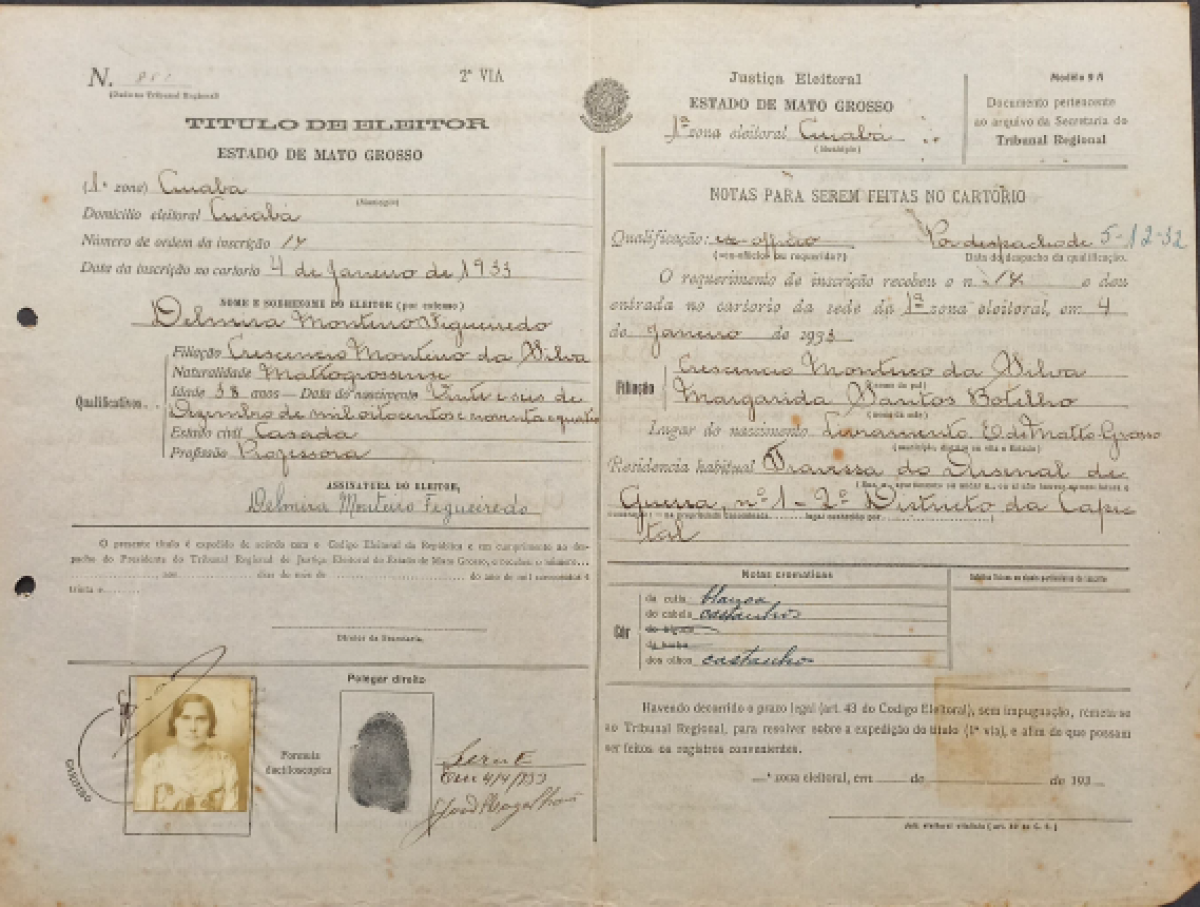 N.
2ª VIA
(Dado no Tribunal Regional)
TITULO DE ELEITOR
ESTADO DE MATO GROSSO
(1ª zona) Cuiabá
(Municipio)
Domicilio eleitoral Cuiabá
Número de ordem da inscrição 14
Data da inscrição no cartorio 4 de Janeiro de 1933
NOME E SOBRENOME DO ELEITOR (por extenso)
Delmira Monteiro Figueiredo
Filiação Crescencio Monteiro da Silva
Naturalidade Mattogrossense
Idade 38 anos — Data do nascimento Vinte e seis de
Qualificativos.
Dezembro de mil oitocentos e noventa e quatro
Estado civil Casada
Profissão Professora
ASSINATURA DO ELEITOR,
Delmira Monteiro Figueiredo
O presente titulo é expedido de acordo com o Codigo Eleitoral da República e em cumprimento ao des-
pacho do Presidente do Tribunal Regional de Justiça Eleitoral do Estado de Mato Grosso, e recebeu o número...
aos dias do mes de do ano de mil novecentos e
trinta e
Diretor da Secretaria.
CARIMBO
Polegar direito
Formula
dactiloscopica
Serie E
Em 4/4/933
Justiça Eleitoral
ESTADO DE MATO GROSSO
1ª zona eleitoral Cuiabá
(Municipio)
Modêlo 9 A
Documento pertencente
ao arquivo da Secretaria do
Tribunal Regional
NOTAS PARA SEREM FEITAS NO CARTORIO
Qualificação: ex-officio Por despacho de 5-12-32
(«ex-officio» ou requerida?) Data do despacho da qualificação.
O requerimento de inscrição recebeu o n. 14 e deu
entrada no cartorio da sede da 1ª zona eleitoral, em 4
de Janeiro de 1933
Filiação
Crescencio Monteiro da Silva
(nome do pai)
Margarida Santos Botelho
(nome da mãe)
Lugar do nascimento Livramento E. de Matto-Grosso
(municipio, distrito ou vila e Estado)
Residencia habitual Travessa do Arsenal de
Guerra, nº 1 - 2º Districto da Capi
tal
Notas cromaticas
Côr
da cutis branca
do cabelo castanhos
do bigode
da barba
dos olhos castanhos
Havendo decorrido o prazo legal (art. 43 do Codigo Eleitoral), sem impugnação, remeta-se
ao Tribunal Regional, para resolver sobre a expedição do titulo (1ª via), e afim de que possam
ser feitos os registros convenientes.
—ª zona eleitoral, em — de de 193